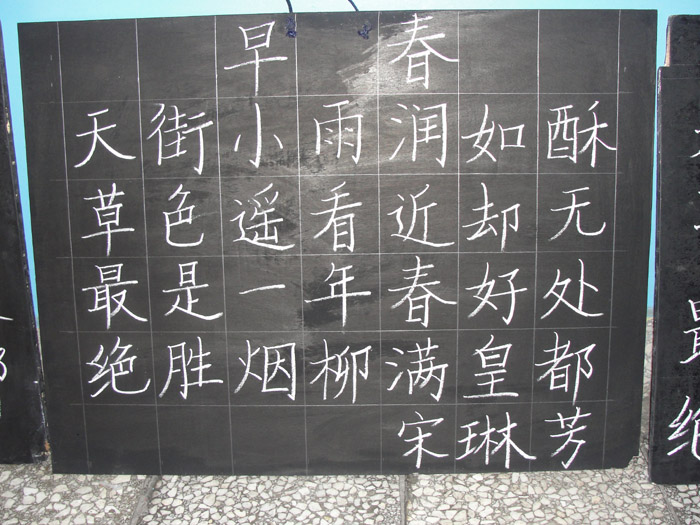 早春
天街小雨润如酥
草色遥看近却无
最是一年春好处
绝胜烟柳满皇都
宋琳芳
最
绝